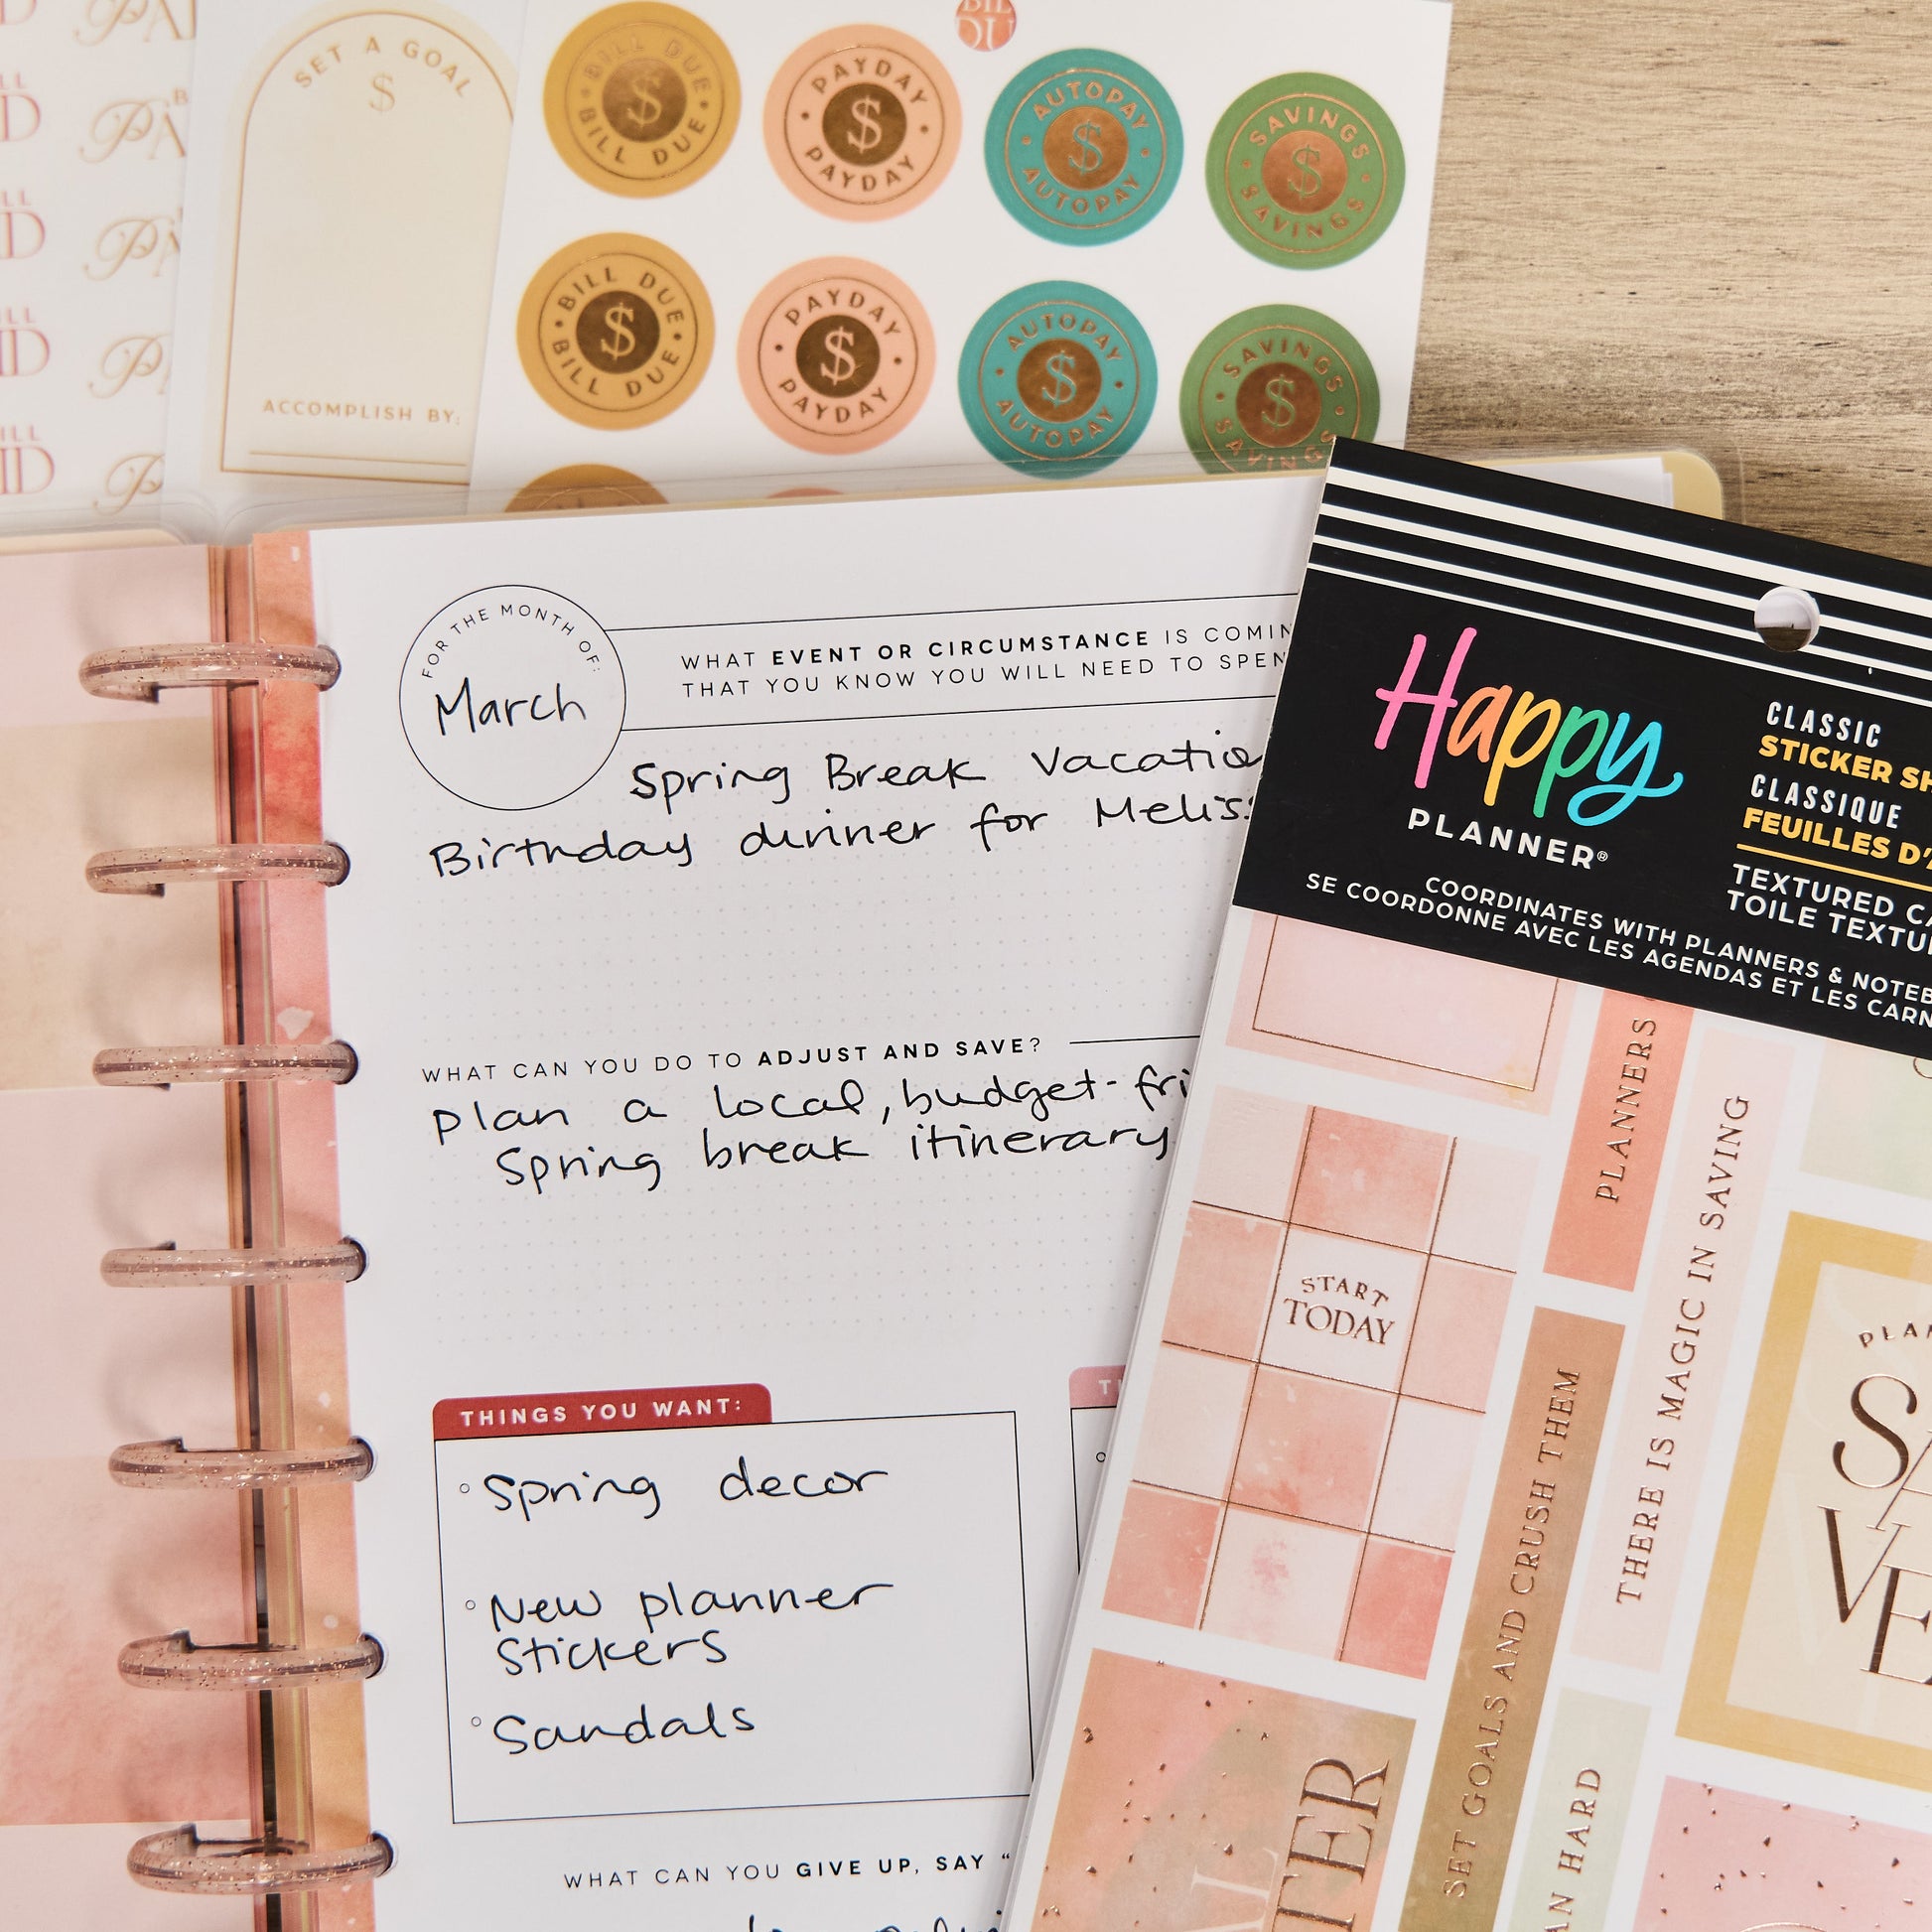 SET A GOAL
$
ACCOMPLISH BY:
BILL DUE
$
BILL DUE
PAYDAY
$
PAYDAY
AUTOPAY
$
AUTOPAY
SAVINGS
$
SAVINGS
BILL DUE
$
BILL DUE
PAYDAY
$
PAYDAY
AUTOPAY
$
AUTOPAY
SAVINGS
$
SAVINGS
FOR THE MONTH OF:
March
WHAT EVENT OR CIRCUMSTANCE IS COMIN
THAT YOU KNOW YOU WILL NEED TO SPEN
Spring Break Vacatio
Birthday dinner for Meliss
WHAT CAN YOU DO TO ADJUST AND SAVE?
plan a local, budget-fri
Spring break itinerary
THINGS YOU WANT:
Spring decor
New planner
Stickers
Sandals
WHAT CAN YOU GIVE UP, SAY "
Happy
PLANNER®
CLASSIC
STICKER SH
CLASSIQUE
FEUILLES D'A
TEXTURED CA
TOILE TEXTU
COORDINATES WITH PLANNERS & NOTEB
SE COORDONNE AVEC LES AGENDAS ET LES CARN
PLANNERS
THERE IS MAGIC IN SAVING
START
TODAY
SET GOALS AND CRUSH THEM
PLAN
SA
VE
TER
AN HARD